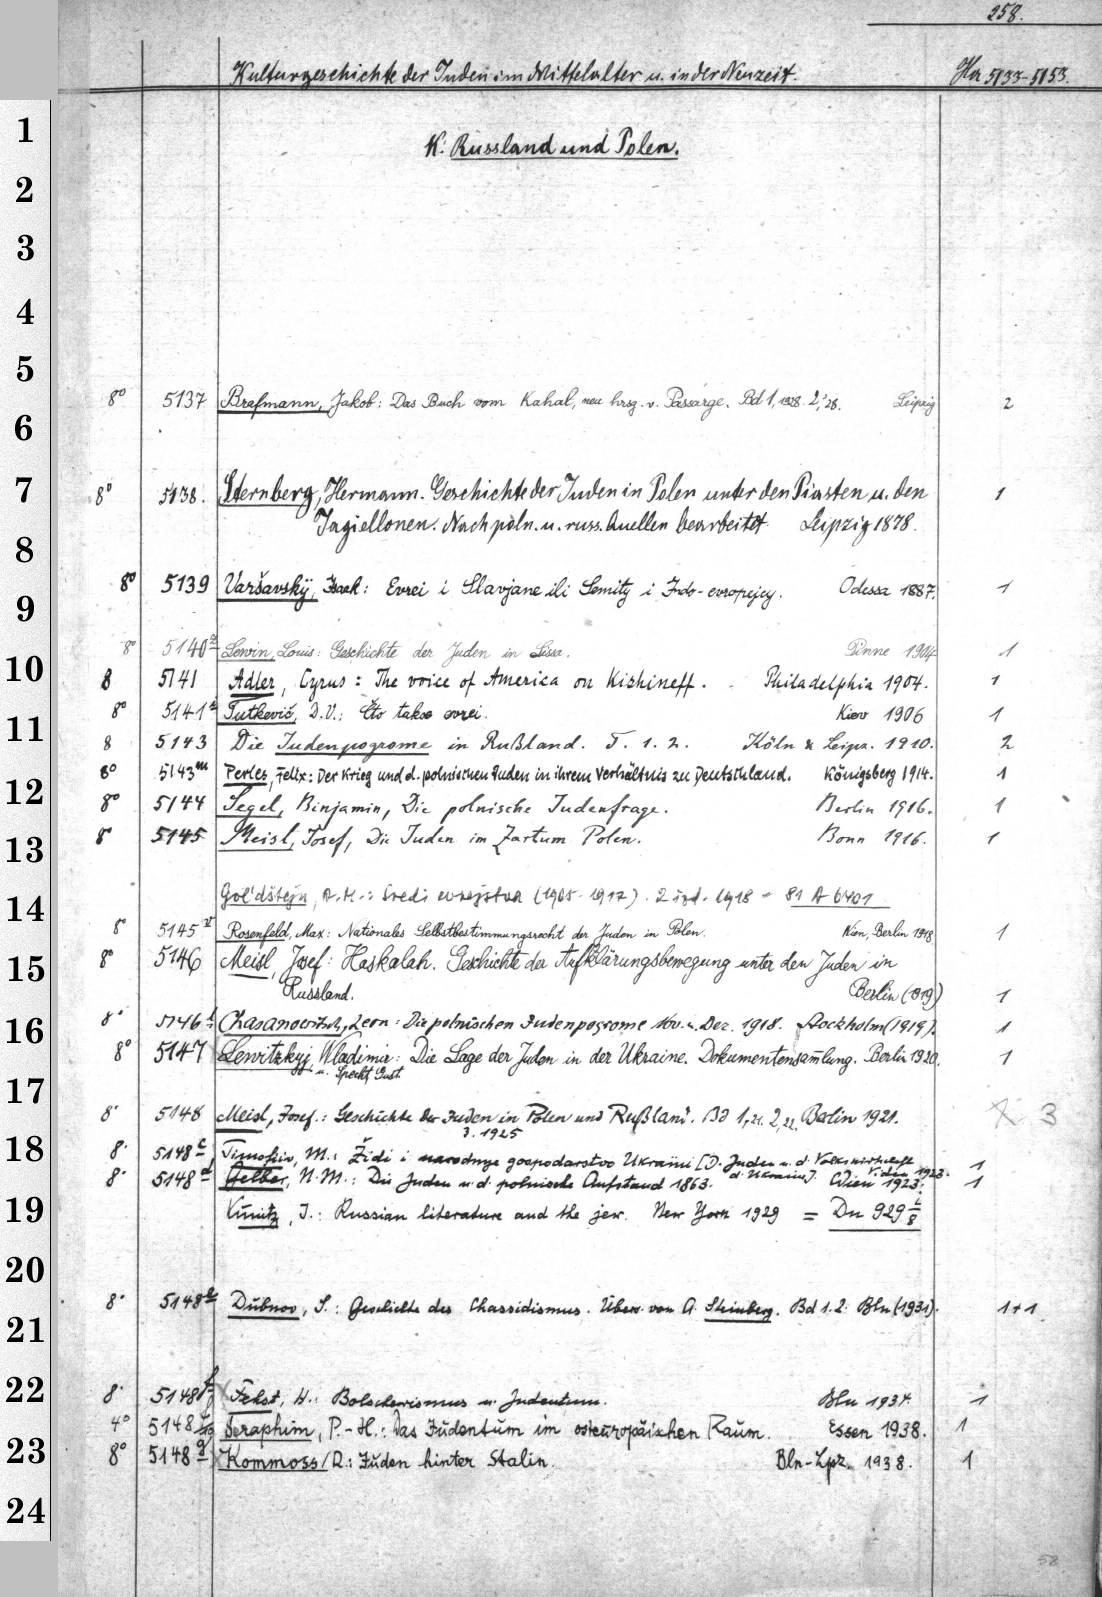 258.
Kulturgeschichte der Juden im Mittelalter u. in der Neuzeit. Ha 5133-5153.
1
K: Russland und Polen.
2
3
4
5
8° 5137 Brafmann, Jakob: Das Buch vom Kahal, neu hrsg. v. Passarge. Bd 1, 1928. 2, '28. Leipzig 2
6
7
8° 5138. Sternberg, Hermann. Geschichte der Juden in Polen unter den Piasten u. den 1
Jagiellonen. Nach poln. u. russ. Quellen bearbeitet Leipzig 1878.
8
8° 5139 Varšavskÿ, Isaak: Evrei i Slavjane ili Semity i Indo-evropejcy. Odessa 1887. 1
9
8° 5140a Lewin, Louis: Geschichte der Juden in Lissa. Pinne 1904 1
10
8 5141 Adler, Cyrus: The voice of America on Kishineff. Philadelphia 1904. 1
8° 5141a Tutkevič, D.V.: Čto takoe evrei. Kiev 1906 1
11
8 5143 Die Judenpogrome in Rußland. T. 1. 2. Köln & Leipz. 1910. 2
8° 5143m Perles, Felix: Der Krieg und d. polnischen Juden in ihrem Verhältnis zu Deutschland. Königsberg 1914. 1
12
8° 5144 Segel, Binjamin, Die polnische Judenfrage. Berlin 1916. 1
8° 5145 Meisl, Josef, Die Juden im Zartum Polen. Bonn 1916. 1
13
Gol'dštejn, A.M.: Sredi evrejstva (1905-1917). 2 izd. 1918 = 81 A 6401
14
8° 5145v Rosenfeld, Max: Nationales Selbstbestimmungsrecht der Juden in Polen. Wien, Berlin 1918 1
8° 5146 Meisl, Josef: Haskalah. Geschichte der Aufklärungsbewegung unter den Juden in
15
Russland. Berlin (1919) 1
8° 5146b Chasanowitsch, Leon: Die polnischen Judenpogrome Nov. u. Dez. 1918. Stockholm (1919). 1
16
8° 5147 Lewitzkyj, Wladimir: Die Lage der Juden in der Ukraine. Dokumentensam̅lung. Berlin 1920. 1
u. Specht, Gust.
17
8° 5148 Meisl, Josef: Geschichte der Juden in Polen und Rußland. Bd 1,21. 2,22. Berlin 1921. 3
3. 1925
18
8° 5148c Timošiv, M.: Židi i narodnye gospodarstvo Ukraini [D. Juden u. d. Volkswirtschaft 1
d. Ukraine]. Viden 1923.
8° 5148d Gelber, N.M.: Die Juden u. d. polnische Aufstand 1863. Wien 1923. 1
19
Kunitz, J.: Russian literature and the jew. New York 1929 = Du 929 i/8
20
8° 5148e Dubnov, S.: Geschichte des Chassidismus. Übers. von A. Steinberg. Bd 1.2. Bln (1931). 1+1
21
22
8° 5148f Fehst, H.: Bolschewismus u. Judentum. Bln 1934. 1
4° 5148 Seraphim, P.-H.: Das Judentum im osteuropäischen Raum. Essen 1938. 1
23
8° 5148g Kommoss, R.: Juden hinter Stalin. Bln-Lpz. 1938. 1
24
58